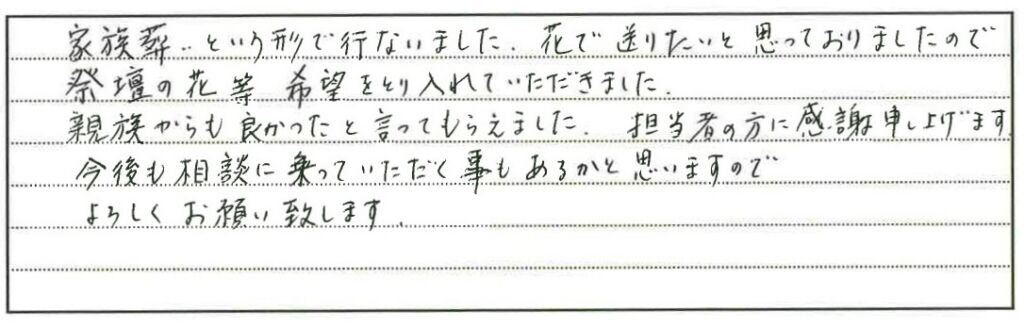 家族葬‥という形で行ないました. 花で送りたいと思っておりましたので
祭壇の花等 希望をとり入れていただきました.
親族からも良かったと言ってもらえました. 担当者の方に感謝申し上げます.
今後も相談に乗っていただく事もあるかと思いますので
よろしくお願い致します.